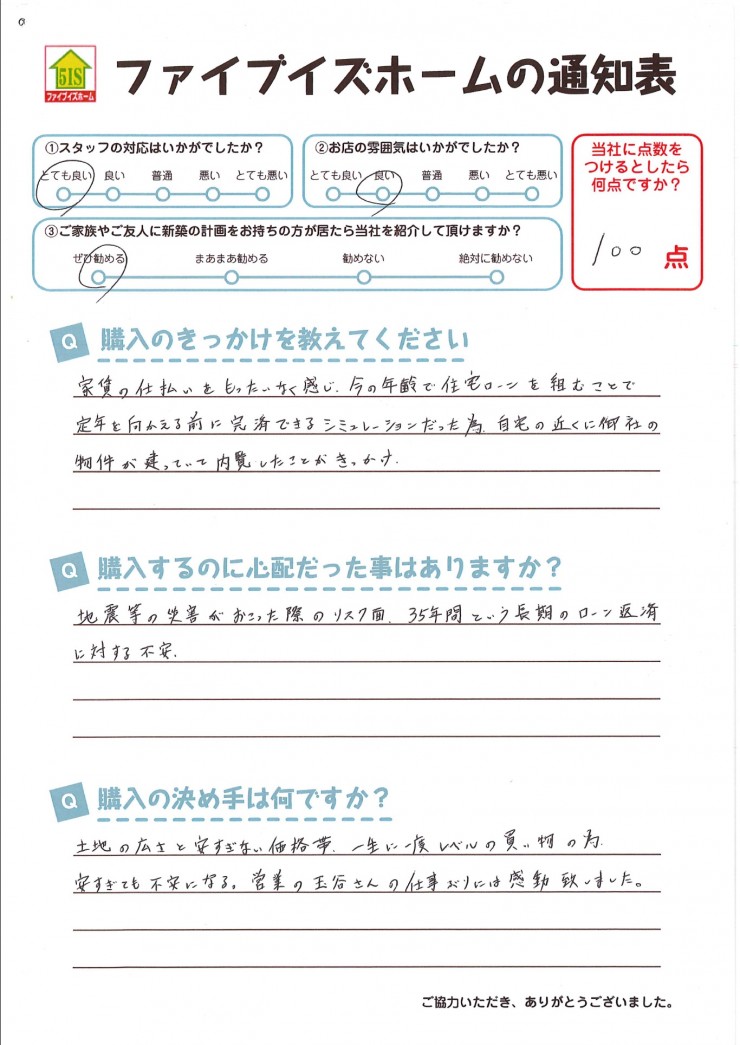 51S
ファイブイズホーム
ファイブイズホームの通知表
①スタッフの対応はいかがでしたか？
とても良い 良い 普通 悪い とても悪い
②お店の雰囲気はいかがでしたか？
とても良い 良い 普通 悪い とても悪い
当社に点数を
つけるとしたら
何点ですか？
100 点
③ご家族やご友人に新築の計画をお持ちの方が居たら当社を紹介して頂けますか？
ぜひ勧める まあまあ勧める 勧めない 絶対に勧めない
Q 購入のきっかけを教えてください
家賃の仕払いをもったいなく感じ、今の年齢で住宅ローンを組むことで
定年を向かえる前に完済できるシミュレーションだった為、自宅の近くに御社の
物件が建っていて内覧したことがきっかけ.
Q 購入するのに心配だった事はありますか？
地震等の災害がおこった際のリスク面、35年間という長期のローン返済
に対する不安.
Q 購入の決め手は何ですか？
土地の広さと安すぎない価格帯、一生に一度レベルの買い物の為
安すぎても不安になる。営業の玉谷さんの仕事ぶりには感動致しました。
ご協力いただき、ありがとうございました。